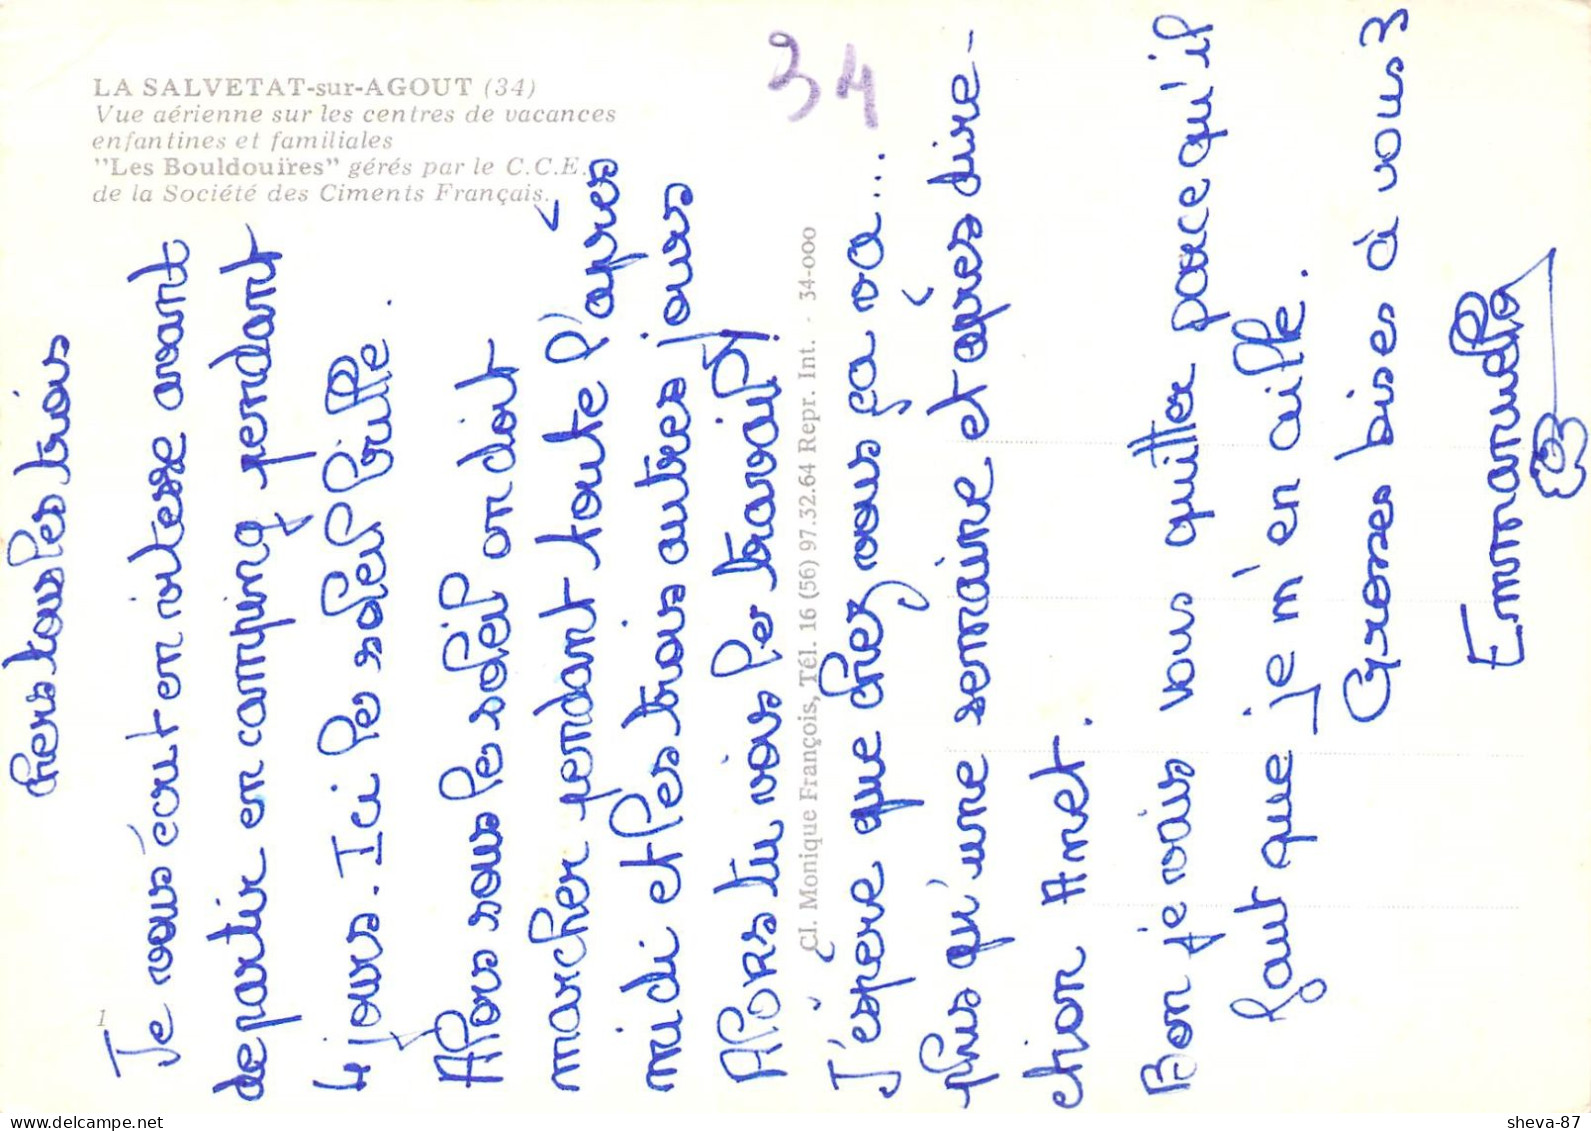 LA SALVETAT-sur-AGOUT (34)
Vue aérienne sur les centres de vacances
enfantines et familiales
"Les Bouldouïres" gérés par le C.C.E.
de la Société des Ciments Français.
34
1
Cl. Monique François, Tél. 16 (56) 97.32.64 Repr. Int. - 34-000
chers tous les trois
Je vous écrit en vitesse avant
de partir en camping pendant
4 jours. Ici le soleil brille.
Alors sous le soleil on doit
marcher pendant toute l'après
midi et les trois autres jours
Alors tu vois le travail !
J'espère que chez vous ça va...
plus qu'une semaine et après dire-
ction Anet.
Bon je vais vous quitter parce qu'il
faut que je m'en aille.
Grosses bises à vous 3
Emmanuelle
sheva-87